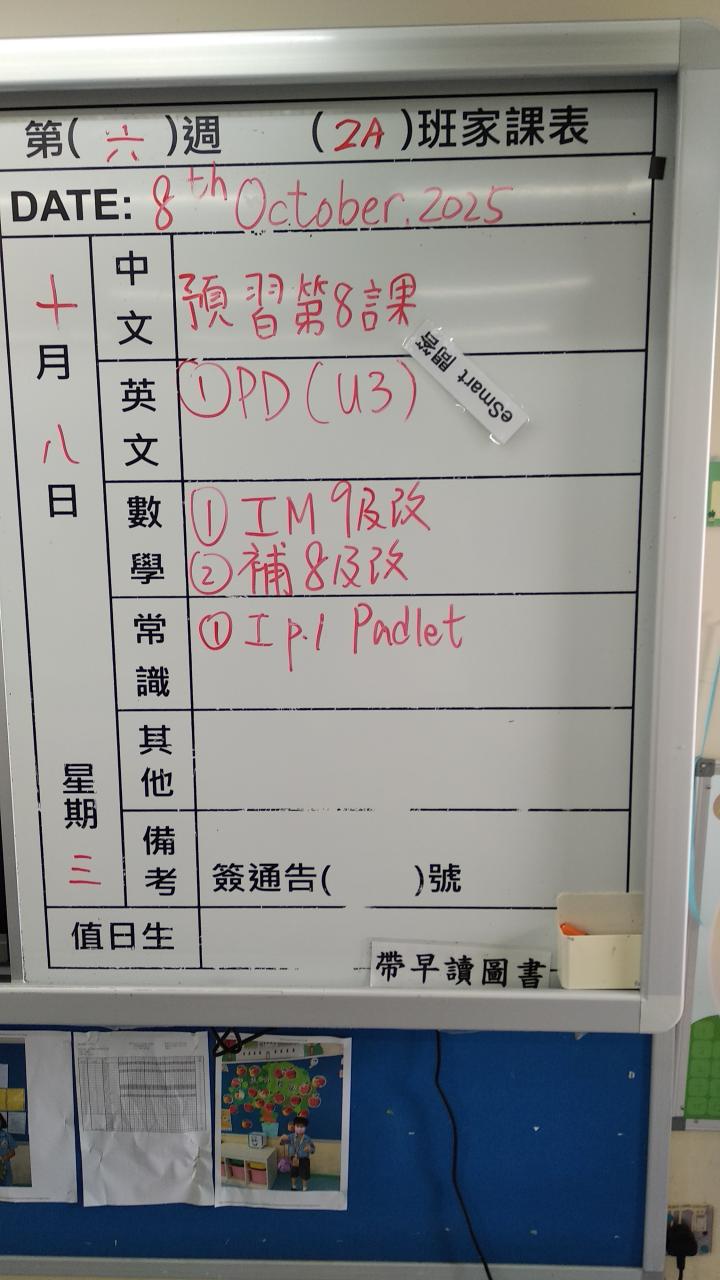 第(六)週 (2A)班家課表
DATE: 8th October, 2025
十月八日
星期三
中文
預習第8課
eSmart 問答
英文
①PD(U3)
數學
①工M 9及改
②補8及改
常識
①工p.1 Padlet
其他
備考
簽通告( )號
值日生
帶早讀圖書